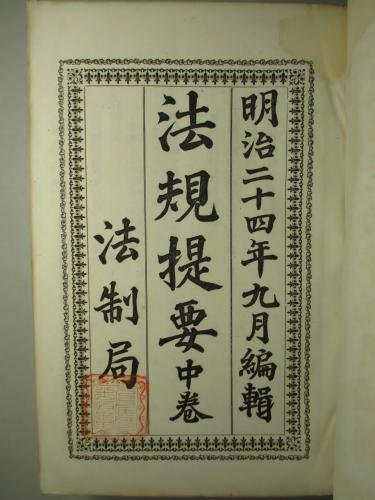 明治二十四年九月編輯
法規提要中卷
法制局